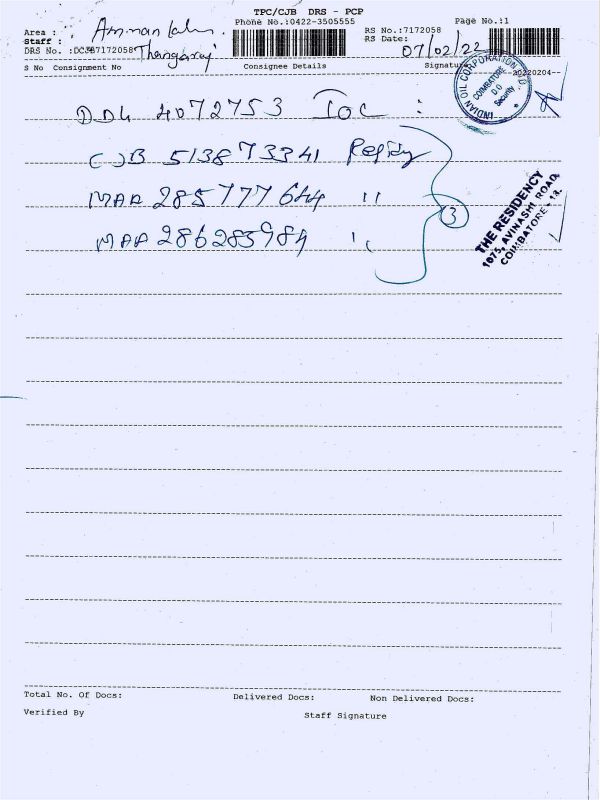 TPC/CJB DRS - PCP
Phone No.:0422-3505555
Page No.:1
Area :
Staff : Thangaraj
DRS No. :DCJB7172058
RS No.:7172058
RS Date: 07/02/22
--20220204--
S No Consignment No Consignee Details Signature
INDIAN OIL CORPORATION LTD.
COIMBATORE
D.O
Security
DDL 4072753 IOC :
CJB 513873341
MAA 285777644 "
MAA 286285984 "
3
THE RESIDENCY
1075, AVINASHI ROAD,
COIMBATORE - 18.
Total No. Of Docs: Delivered Docs: Non Delivered Docs:
Verified By Staff Signature